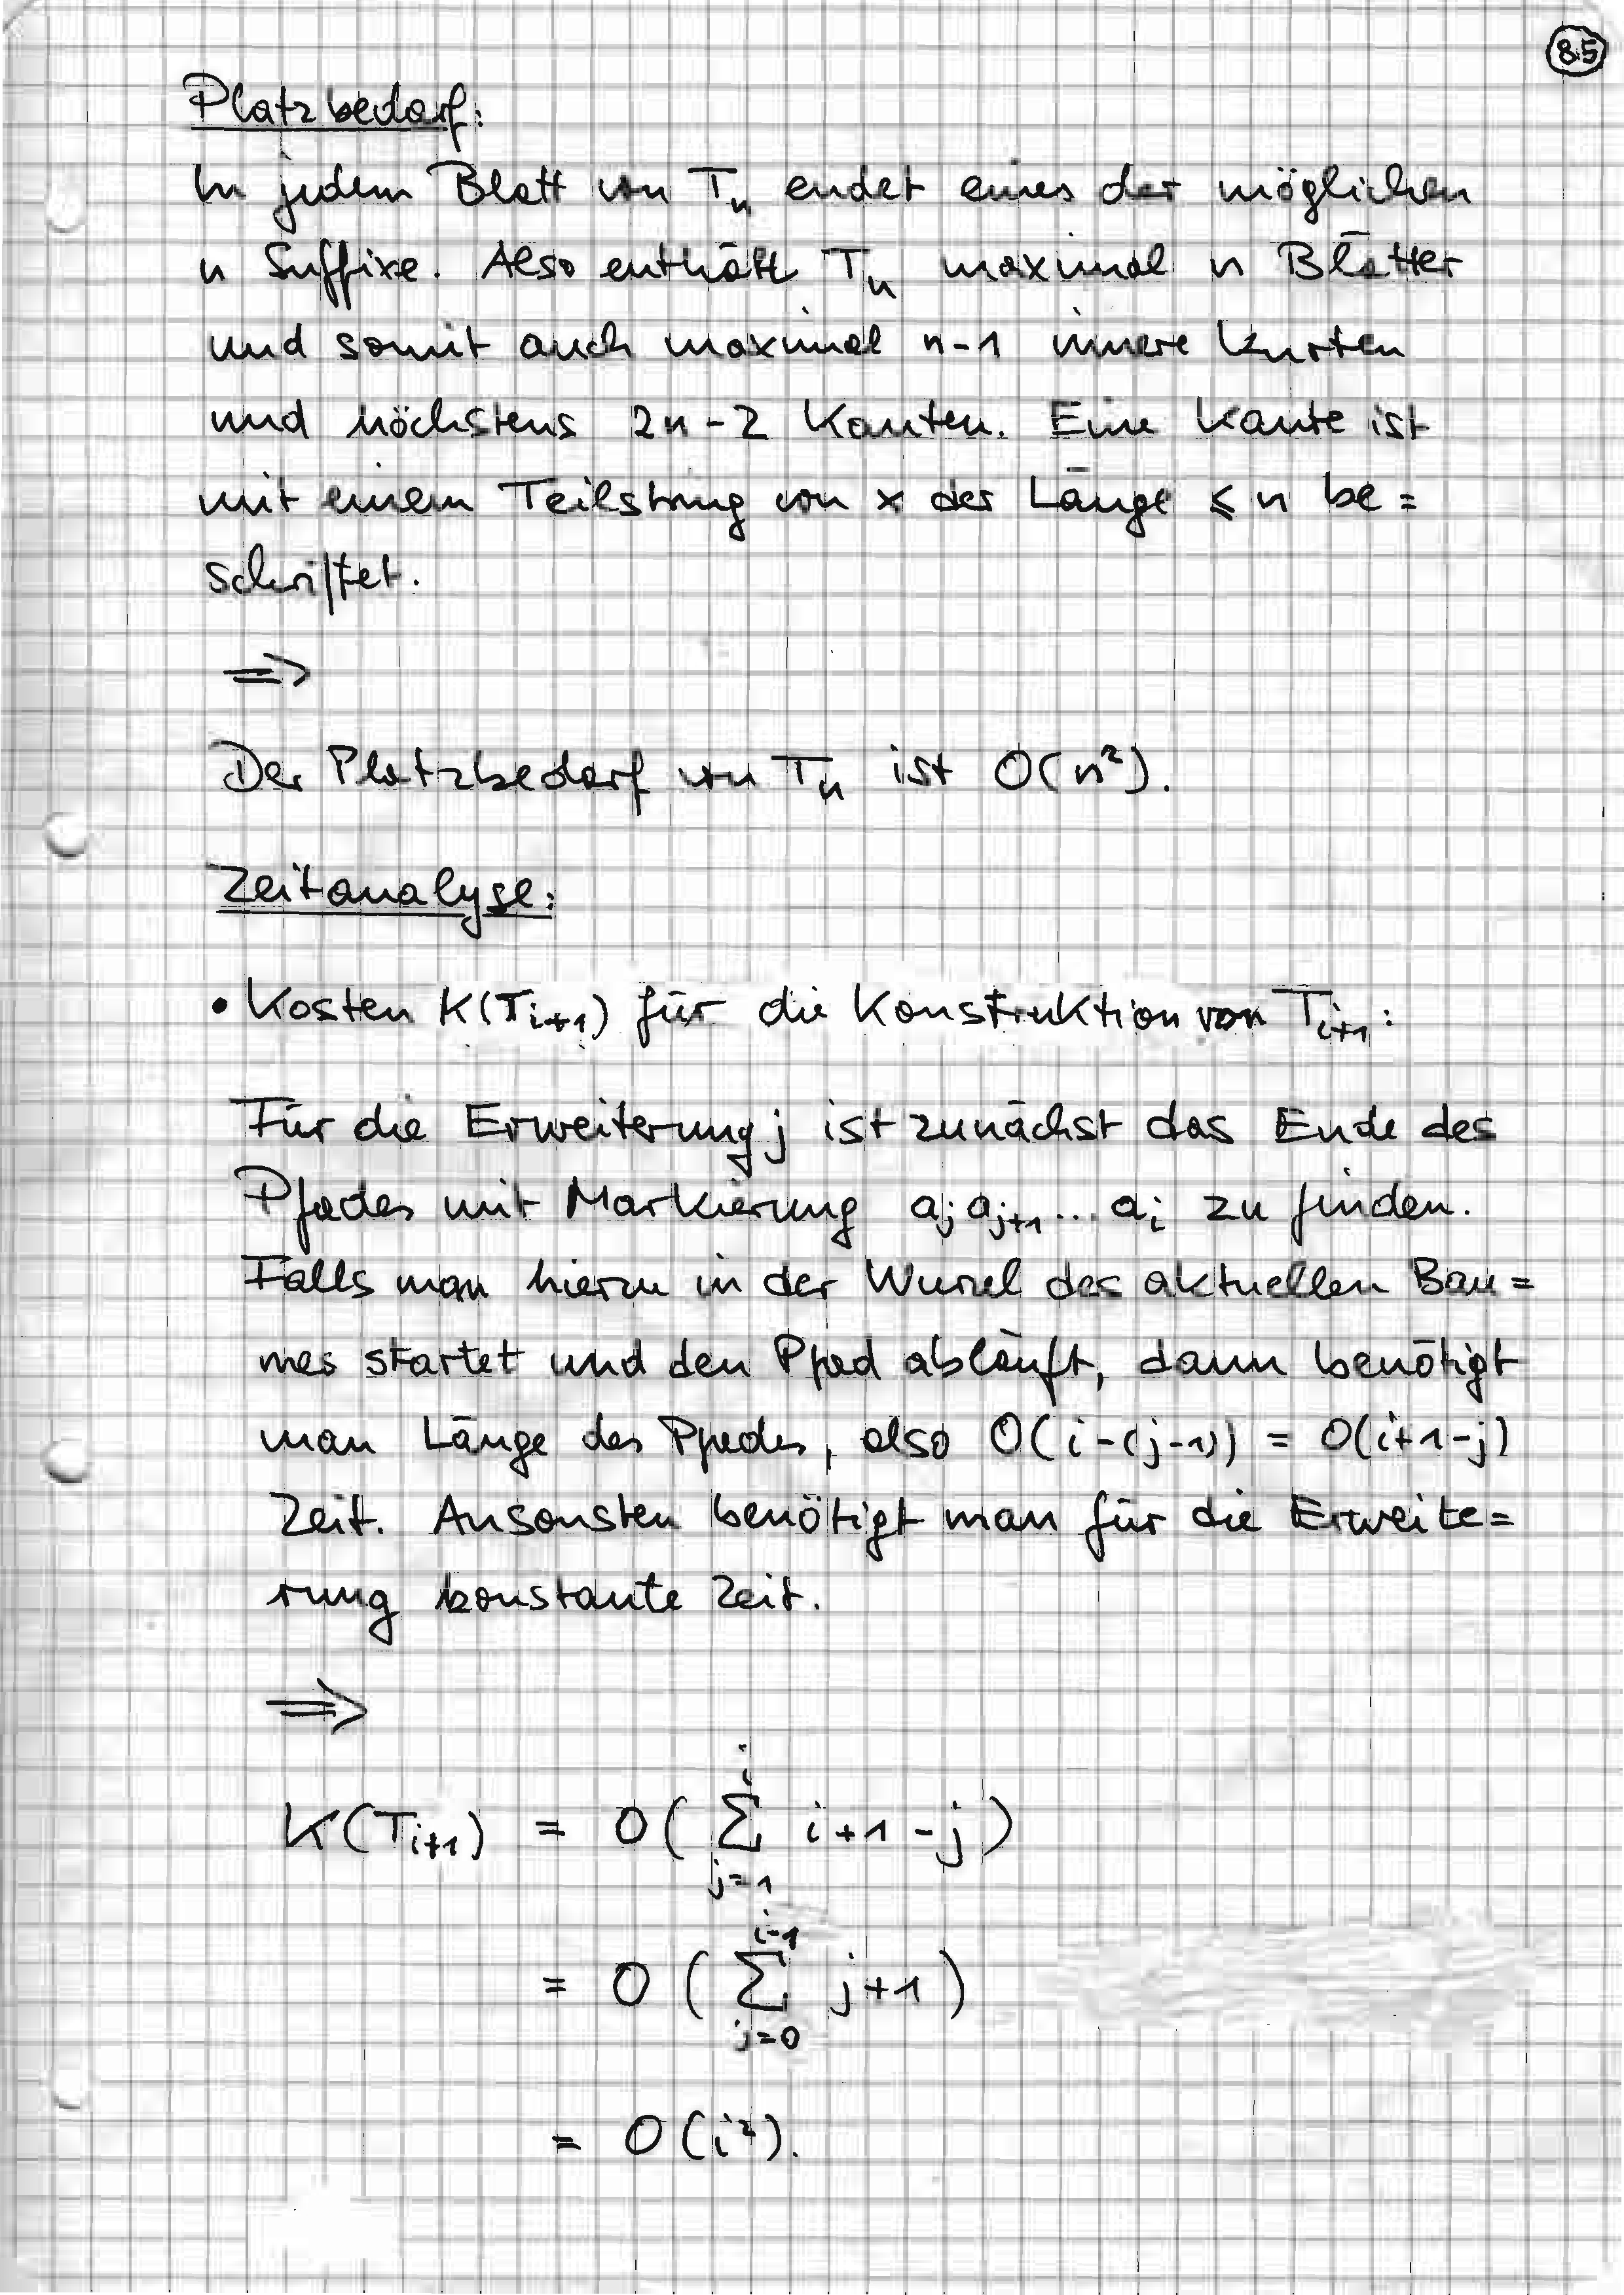 85
Platzbedarf:
In jedem Blatt von Tₙ endet eines der möglichen
n Suffixe. Also enthält Tₙ maximal n Blätter
und somit auch maximal n-1 innere Knoten
und höchstens 2n-2 Kanten. Eine Kante ist
mit einem Teilstring von x der Länge ≤ n be=
schriftet.
⇒
Der Platzbedarf von Tₙ ist O(n²).
Zeitanalyse:
• Kosten K(Tᵢ₊₁) für die Konstruktion von Tᵢ₊₁:
Für die Erweiterung j ist zunächst das Ende des
Pfades mit Markierung aⱼaⱼ₊₁...aᵢ zu finden.
Falls man hierzu in der Wurzel des aktuellen Bau=
mes startet und den Pfad abläuft, dann benötigt
man Länge des Pfades, also O(i-(j-1)) = O(i+1-j)
Zeit. Ansonsten benötigt man für die Erweite=
rung konstante Zeit.
⇒
K(Tᵢ₊₁) = O( ∑_{j=1}^{i} i+1-j )
= O ( ∑_{j=0}^{i-1} j+1 )
= O(i²).